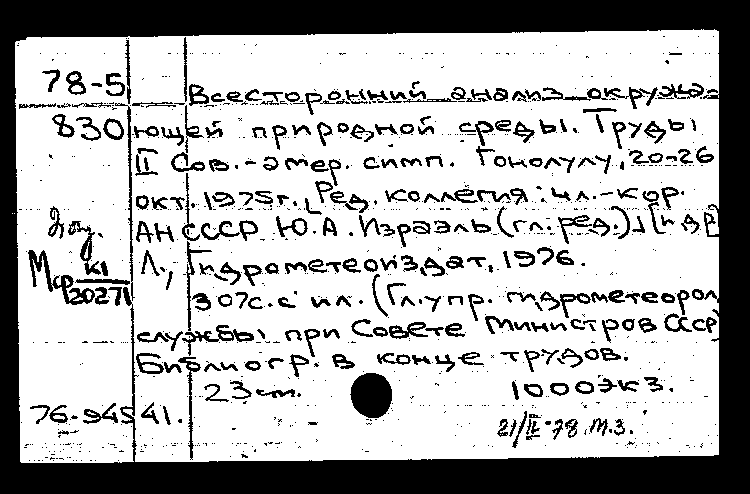 78-5 Всесторонний анализ окружа-
830 ющей природной среды. Труды
II Сов.-амер. симп. Гонолулу, 20-26
окт. 1975г., [Ред. коллегия: чл.-кор.
АН СССР Ю.А. Израэль (гл.ред.)] [и др]
Л., Гидрометеоиздат, 1976.
Мср К1/20271
307с. с ил. (Гл. упр. гидрометеорол
службы при Совете Министров СССР)
Библиогр. в конце трудов.
23 см. 1000экз.
76-94541.
21/II-78 М.З.